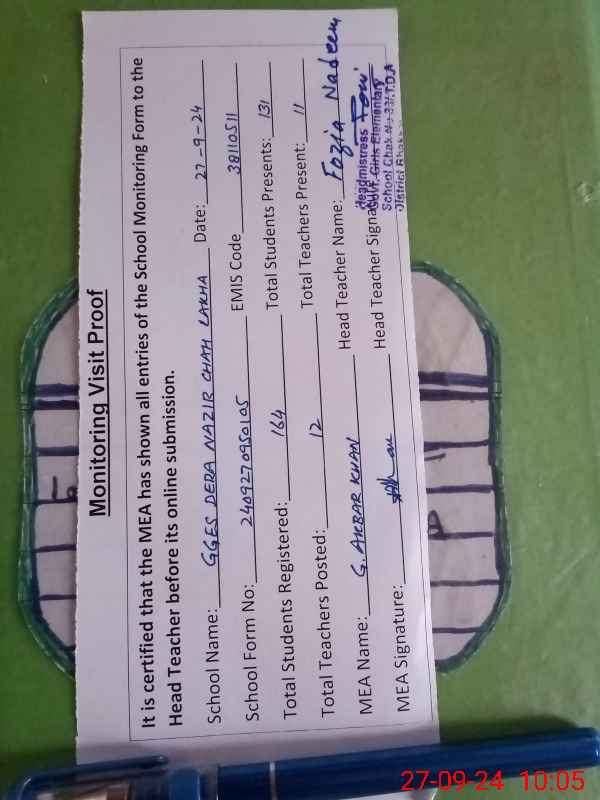 Monitoring Visit Proof
It is certified that the MEA has shown all entries of the School Monitoring Form to the
Head Teacher before its online submission.
School Name: GGES DERA NAZIR CHAH LAKHA Date: 27-9-24
School Form No: 2409270950105 EMIS Code 38110511
Total Students Registered: 164 Total Students Presents: 131
Total Teachers Posted: 12 Total Teachers Present: 11
MEA Name: G. AKBAR KHAN Head Teacher Name: Fozia Nadeem
MEA Signature: Head Teacher Signature
Headmistress
Govt. Girls Elementary
School Chak No 33/T.D.A
District
27-09-24 10:05